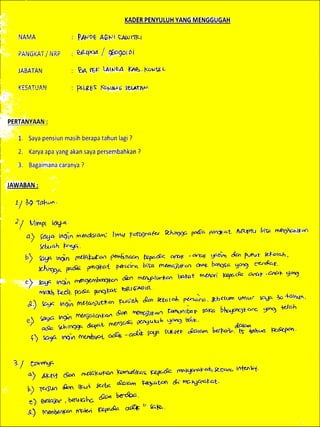 KADER PENYULUH YANG MENGGUGAH
NAMA : PANDE AGNI SAWITRI
PANGKAT / NRP : BRIPDA /
JABATAN : BA PEK LAINEA KAB. KONSEL
KESATUAN : POLRES KONAWE SELATAN
PERTANYAAN :
1. Saya pensiun masih berapa tahun lagi ?
2. Karya apa yang akan saya persembahkan ?
3. Bagaimana caranya ?
JAWABAN :
1./ 39 Tahun.
2./ Mimpi saya
a) saya ingin mendalami ilmu Fotografer sehingga pada pangkat bisa menghasilkan
sebuah karya.
b) saya ingin melakukan pembinaan kepada anak-anak yatim dan putus sekolah,
sehingga pada pangkat perwira bisa memajukan anak bangsa yang cerdas.
c) saya ingin mengembangkan dan menyalurkan bakat menari kepada anak-anak yang
masih kecil pada pangkat BRIGADIR
d) saya ingin melanjutkan kuliah dan sekolah perwira sebelum umur saya 30 tahun.
e) saya ingin menjalankan dan yang telah
ada sehingga dapat menjadi penyuluh yang baik.
f) saya ingin membuat adik-adik saya sukses dalam tahun kedepan.
3./ Caranya
a) Aktif dan melakukan komunikasi kepada masyarakat secara intens.
b) Terjun dan ikut serta dalam kegiatan di masyarakat.
c) Belajar, berusaha dan berdoa.
d) Memberikan materi kepada adik" saya.